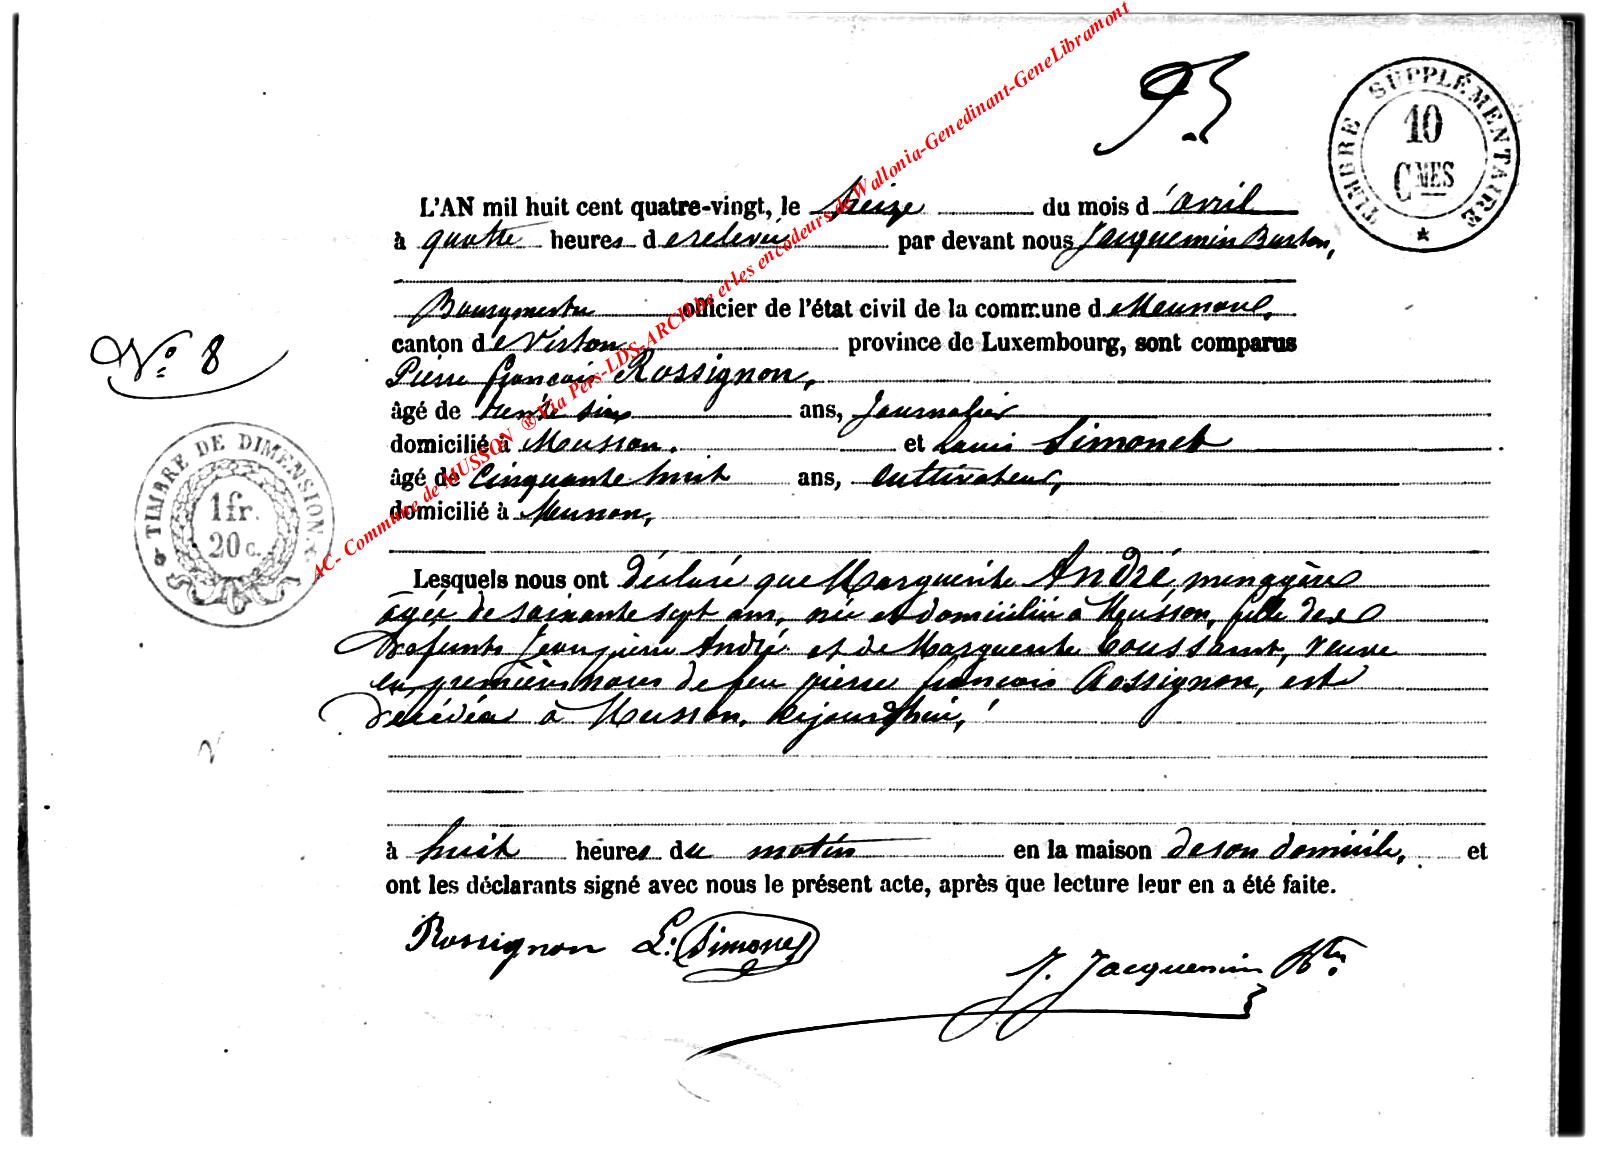 TIMBRE SUPPLÉMENTAIRE
10
CMES
L'AN mil huit cent quatre-vingt, le Seize du mois d'avril
à quatre heures de relevée par devant nous Jacquemin
Bourgmestre officier de l'état civil de la commune de Musson,
canton de Virton province de Luxembourg, sont comparus
Pierre françois Rossignon,
âgé de trente six ans, Journalier
domicilié à Musson, et Louis Simonet
âgé de Cinquante huit ans, cultivateur,
domicilié à Musson,
Nº 8
TIMBRE DE DIMENSION.
1 fr.
20 c.
Lesquels nous ont déclaré que Marguerite André menagère
âgée de soixante sept ans, née et domiciliée à Musson, fille de
Defunts Jean pierre André et de Marguerite Toussaint, veuve
en premières noces de feu pierre françois Rossignon, est
Décédée à Musson, Aujourd'hui,
à huit heures du matin en la maison de son domicile, et
ont les déclarants signé avec nous le présent acte, après que lecture leur en a été faite.
Rossignon L. Simonet
J. Jacquemin
AC- Commune de MUSSON ® Via Pers-LDS-ARCHbe et les encodeurs de Wallonia-Genedinant-GeneLibramont